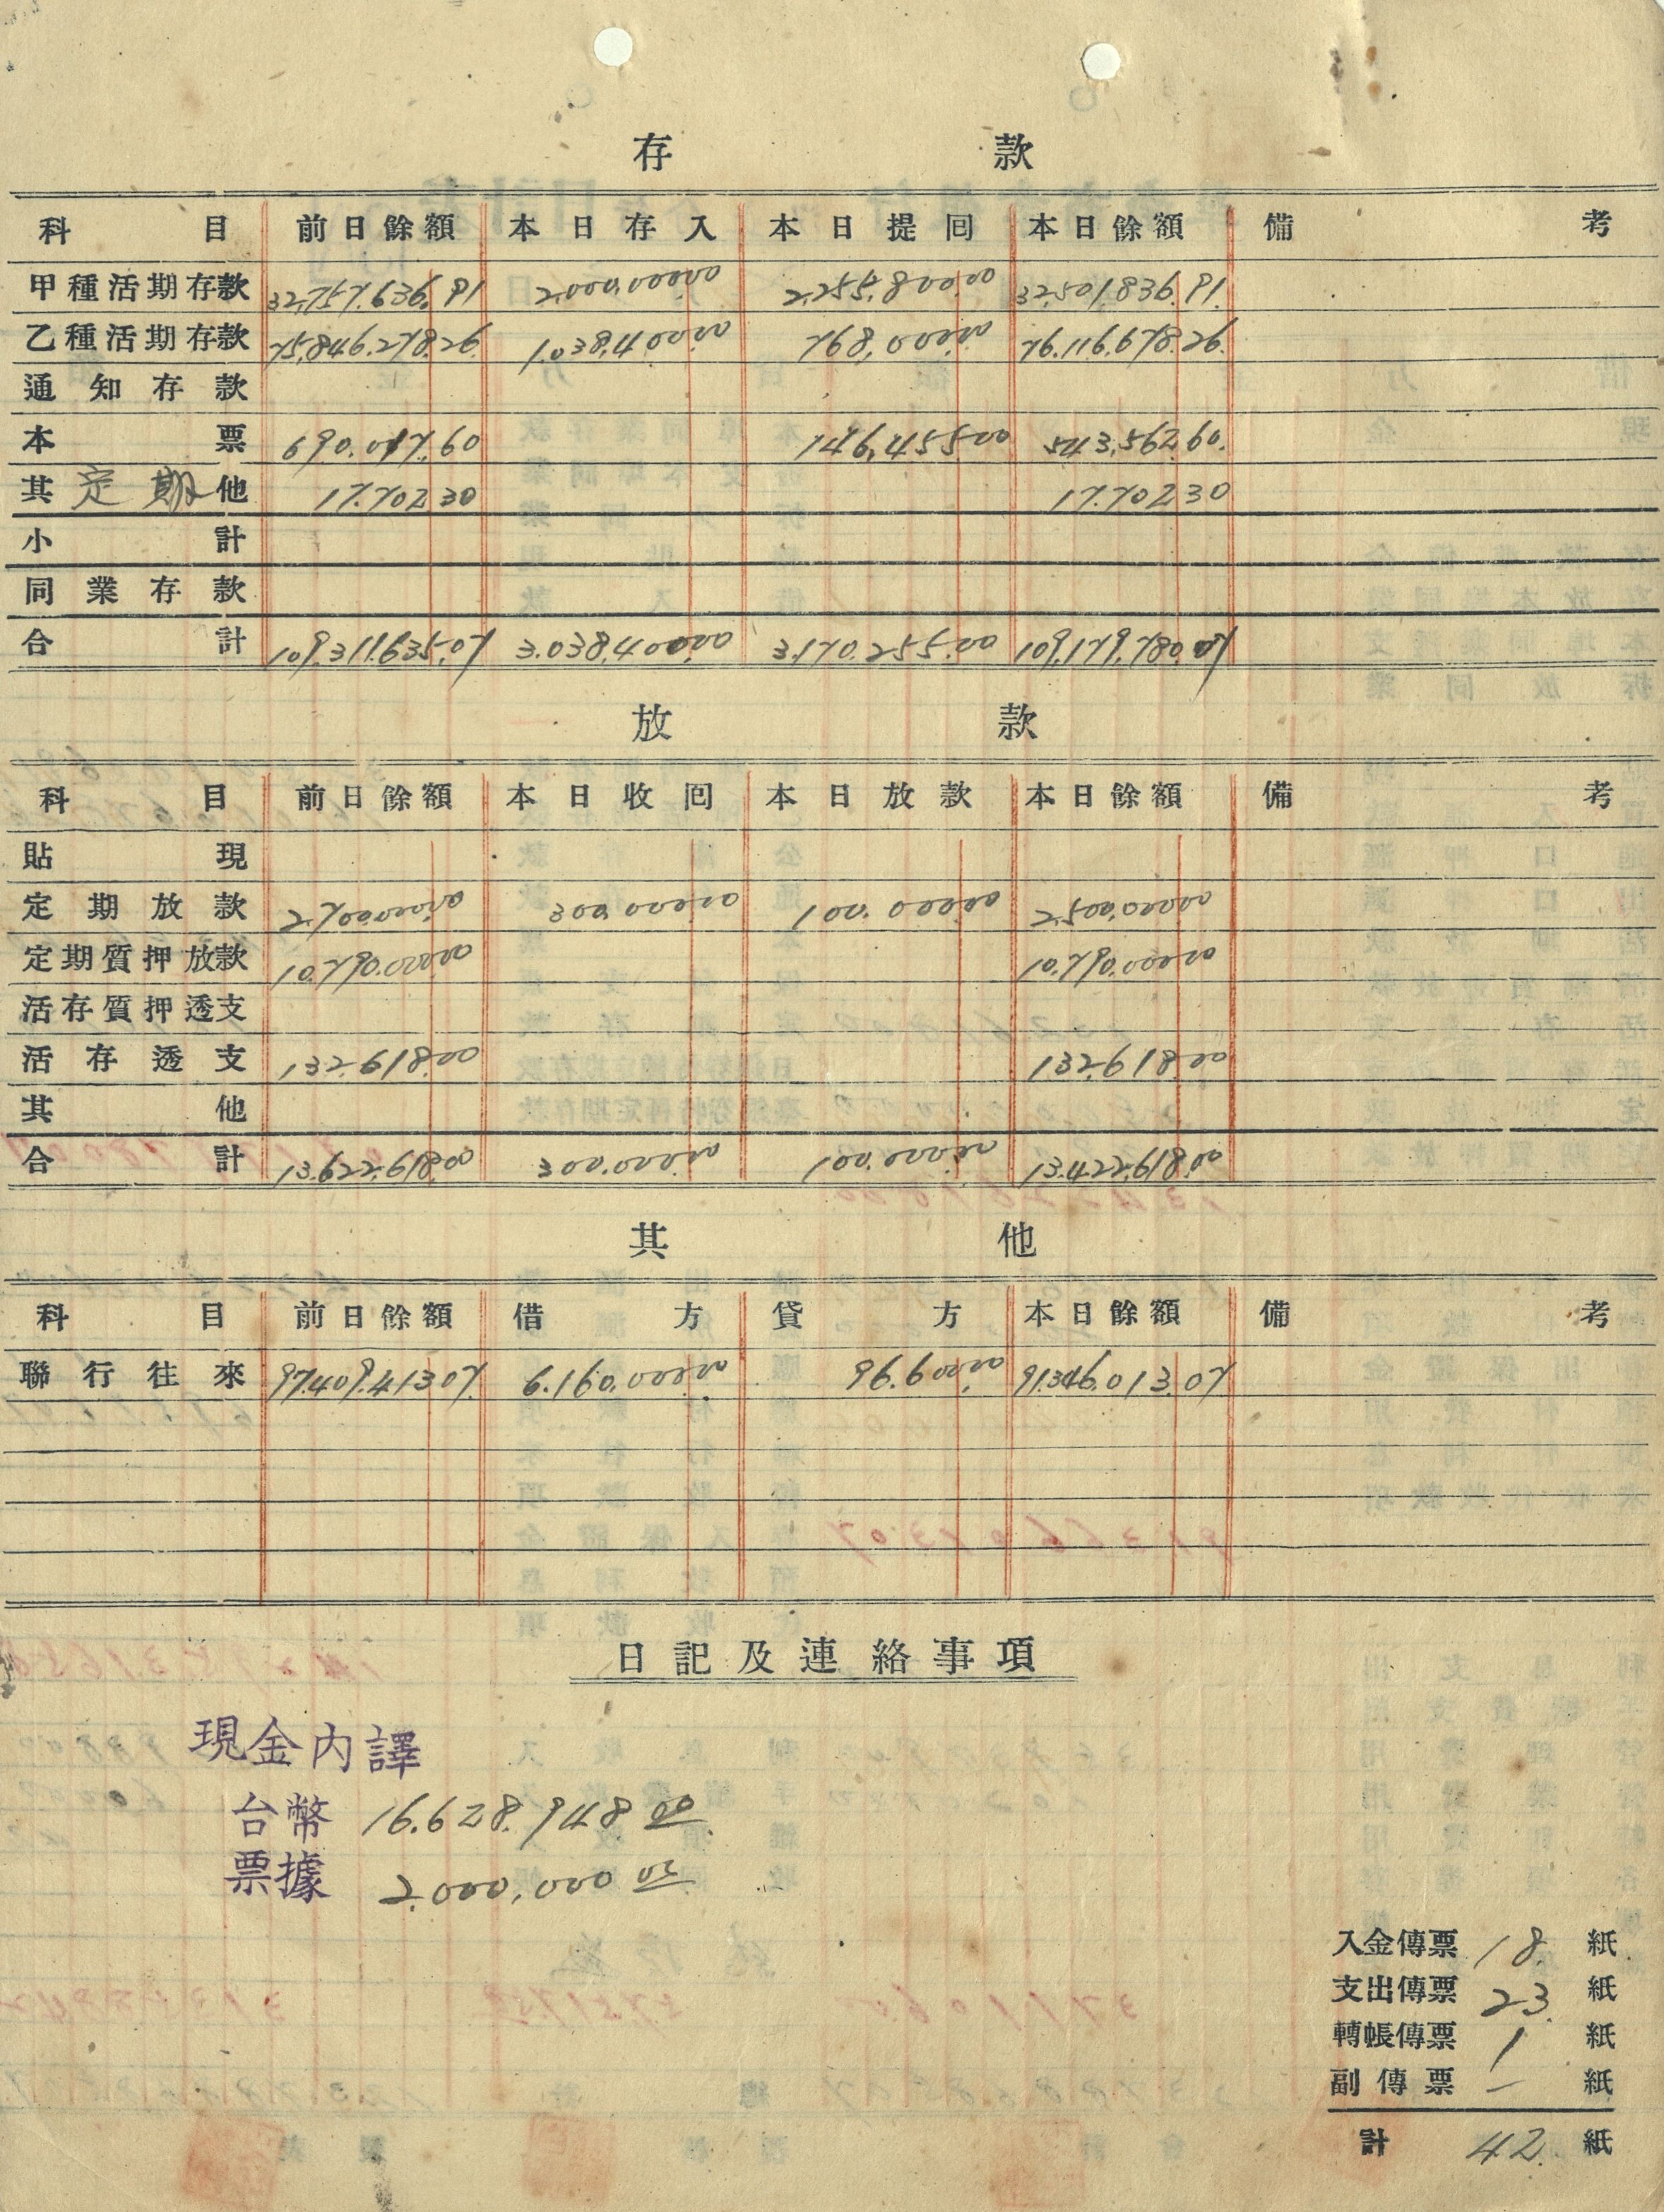 存款
科目 前日餘額 本日存入 本日提囘 本日餘額 備考
甲種活期存款 32,757,636.91 2,000,000.00 2,255,800.00 32,501,836.91
乙種活期存款 75,846,278.26 1,038,400.00 768,000.00 76,116,678.26
通知存款
本票 690,017.60 146,455.00 543,562.60
其定期他 17,702.30 17,702.30
小計
同業存款
合計 109,311,635.07 3,038,400.00 3,170,255.00 109,179,780.07
放款
科目 前日餘額 本日收囘 本日放款 本日餘額 備考
貼現
定期放款 2,700,000.00 300,000.00 100,000.00 2,500,000.00
定期質押放款 10,790,000.00 10,790,000.00
活存質押透支
活存透支 132,618.00 132,618.00
其他
合計 13,622,618.00 300,000.00 100,000.00 13,422,618.00
其他
科目 前日餘額 借方 貸方 本日餘額 備考
聯行往來 97,409,413.07 6,160,000.00 96,600.00 91,346,013.07
日記及連絡事項
現金內譯
台幣 16,628,948.00
票據 2,000,000.00
入金傳票 18 紙
支出傳票 23 紙
轉帳傳票 1 紙
副傳票 — 紙
計 42 紙